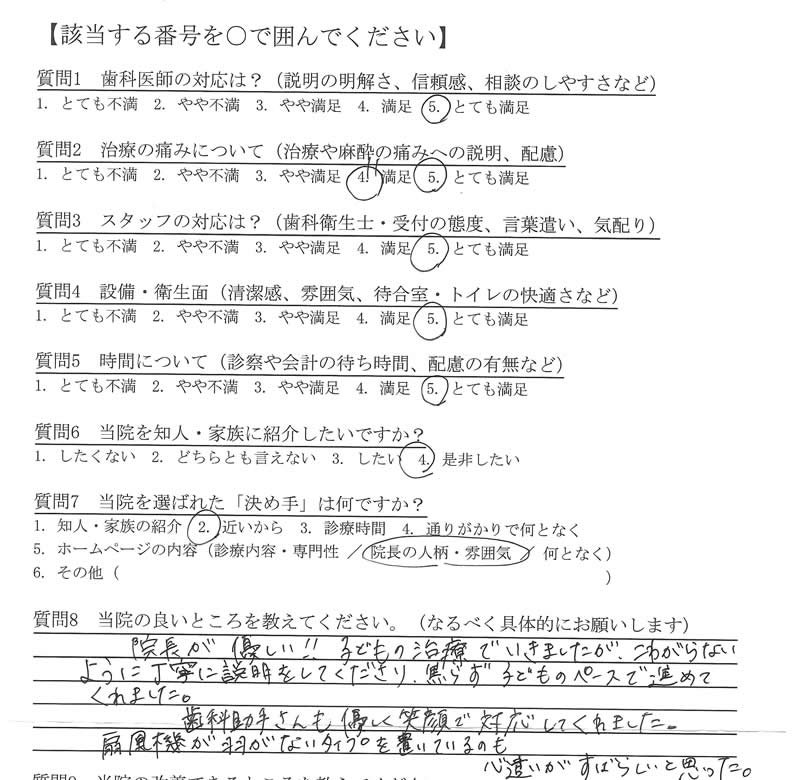 【該当する番号を○で囲んでください】
質問1 歯科医師の対応は？（説明の明解さ、信頼感、相談のしやすさなど）
1. とても不満 2. やや不満 3. やや満足 4. 満足 5. とても満足
質問2 治療の痛みについて（治療や麻酔の痛みへの説明、配慮）
1. とても不満 2. やや不満 3. やや満足 4. 満足 5. とても満足
質問3 スタッフの対応は？（歯科衛生士・受付の態度、言葉遣い、気配り）
1. とても不満 2. やや不満 3. やや満足 4. 満足 5. とても満足
質問4 設備・衛生面（清潔感、雰囲気、待合室・トイレの快適さなど）
1. とても不満 2. やや不満 3. やや満足 4. 満足 5. とても満足
質問5 時間について（診察や会計の待ち時間、配慮の有無など）
1. とても不満 2. やや不満 3. やや満足 4. 満足 5. とても満足
質問6 当院を知人・家族に紹介したいですか？
1. したくない 2. どちらとも言えない 3. したい 4. 是非したい
質問7 当院を選ばれた「決め手」は何ですか？
1. 知人・家族の紹介 2. 近いから 3. 診療時間 4. 通りがかりで何となく
5. ホームページの内容（診療内容・専門性 ／ 院長の人柄・雰囲気 ／ 何となく）
6. その他（ ）
質問8 当院の良いところを教えてください。（なるべく具体的にお願いします）
院長が優しい!! 子どもの治療でいきましたが、こわがらない
ように丁寧に説明をしてくださり、焦らず子どものペースで進めて
くれました。
歯科助手さんも優しく笑顔で対応してくれました。
扇風機が羽がないタイプを置いているのも
心遣いがすばらしいと思った。